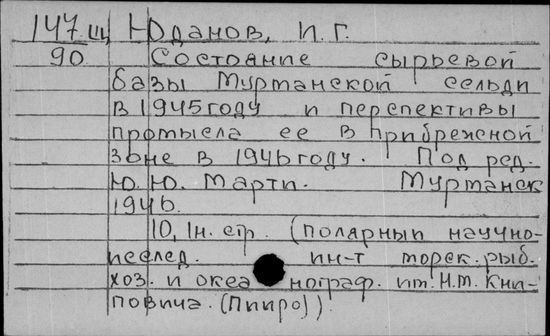 147щ Юданов, И. Г.
90 Состояние сырьевой
базы Мурманской сельди
в 1945 году и перспективы
промысла ее в прибрежной
зоне в 1946 году. Под ред.
Ю. Ю. Марти. Мурманск
1946.
10, 1н. стр. (полярный научно-
исслед. ин-т морск. рыб.
хоз. и океанограф. им. Н.М. Кни-
повича. (Пинро)).